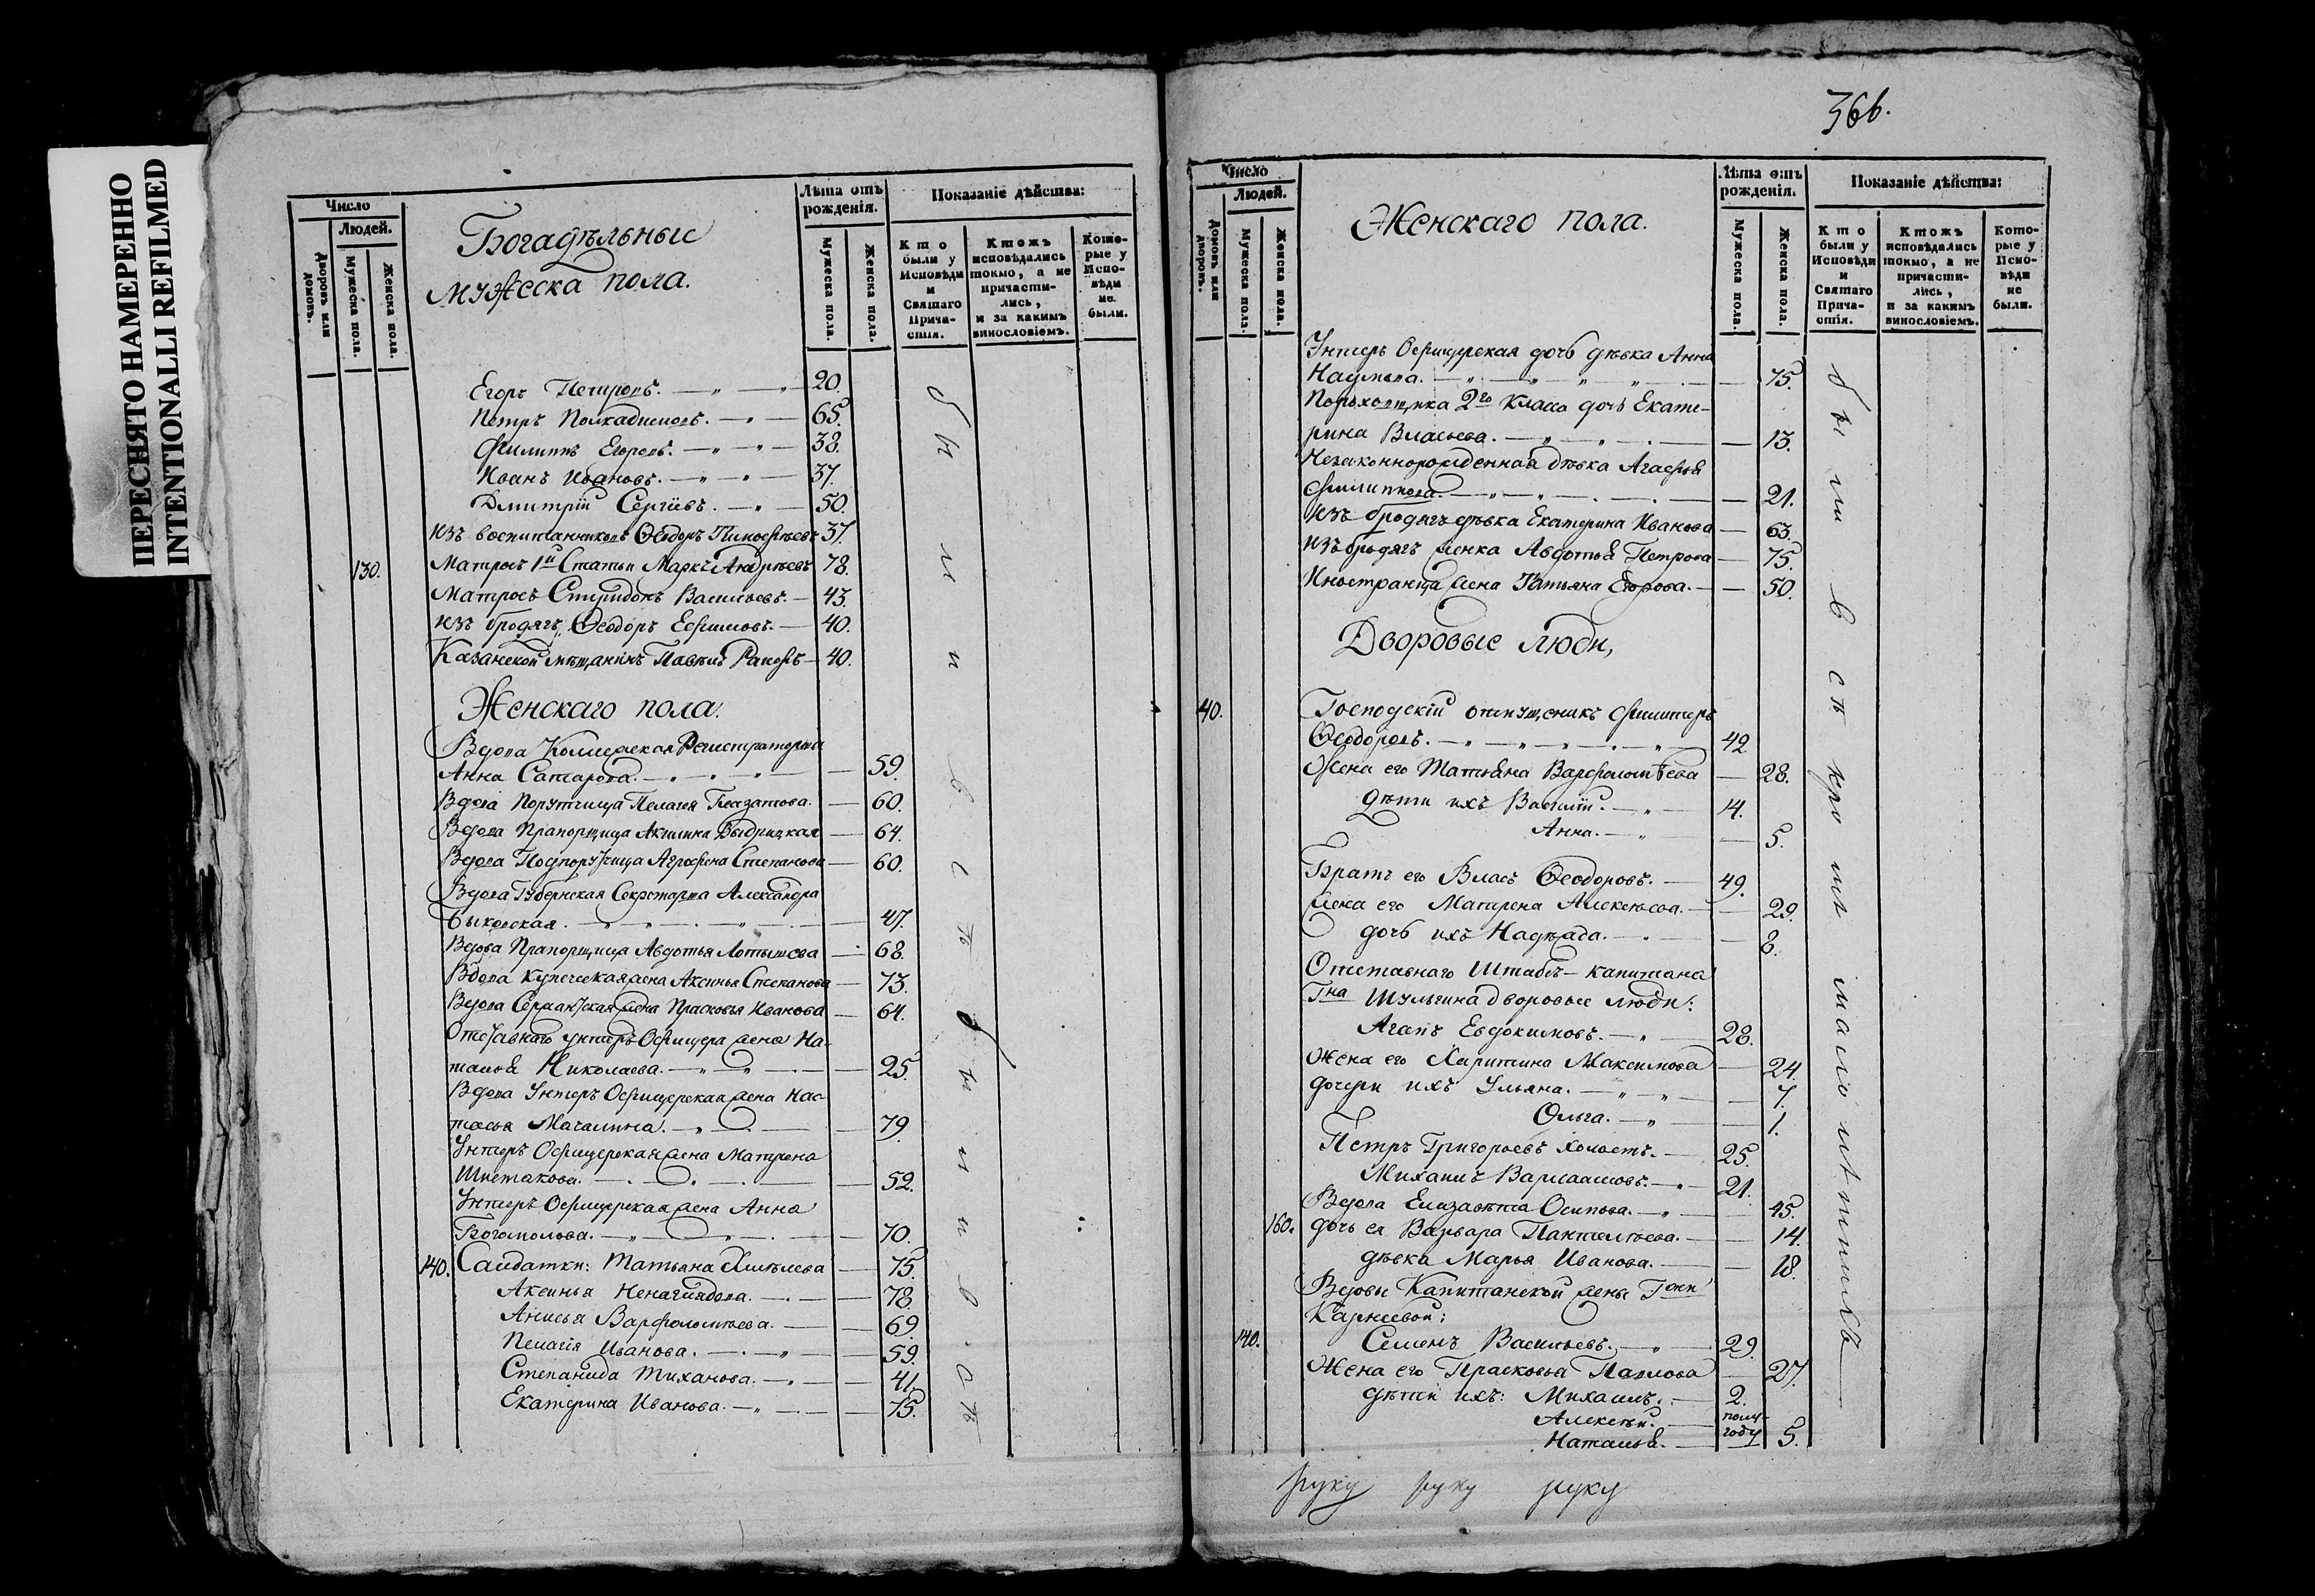 ПЕРЕСНЯТО НАМЕРЕННО
INTENTIONALLI REFILMED
Число
Людей.
Дворовъ или домовъ.
Мужеска пола.
Женска пола.
Богадѣльные
мужеска пола.
Лѣта отъ рожденія.
Мужеска пола.
Женска пола.
Показаніе дѣйства:
Кто были у Исповѣди и Святаго Причастія.
Ктожъ исповѣдались токмо, а не причастились, и за какимъ винословіемъ.
Которые у Исповѣди не были.
Егоръ Петровъ. 20.
Петръ Полкадимовъ. 65.
Филиппъ Егоровъ. 38.
Иванъ Ивановъ. 37.
Дмитрій Сергіевъ. 50.
изъ воспитанниковъ Ѳеодоръ Тимофѣевъ 37.
130. Матросъ 1й Статьи Маркъ Андрѣевъ 78.
Матросъ Спиридонъ Васильевъ. 43.
изъ бродягъ Ѳеодоръ Ефимовъ. 40.
Казанской мѣщанинъ Павелъ 40.
Женскаго пола.
Вдова Коллежская Регистраторша
Анна Сатарова. 59.
Вдова Порутчица Пелагея 60.
Вдова Прапорщица Акилина 64.
Вдова Подпорутчица Аграфена Степанова 60.
Вдова Губернская Секретарша Александра
Быковская. 47.
Вдова Прапорщица Авдотья Лотышева 68.
Вдова Купеческая жена Аксинья Степанова 73.
Вдова Сержантская жена Прасковья Иванова 64.
Отставнаго унтеръ Офицера жена На-
талья Николаева. 25.
Вдова Унтеръ Офицерская жена Нас-
тасья Мачалина. 79.
Унтеръ Офицерская жена Матрена
Шестакова. 52.
Унтеръ Офицерская жена Анна
Богомолова. 70.
140. Салдатки: Татьяна 75.
Аксинья 78.
Анисья Варфоломѣева. 69.
Пелагія Иванова. 59.
Степанида Тиханова. 41.
Екатерина Иванова. 75.
были и
366.
Число
Людей.
Домовъ или дворовъ.
Мужеска пола.
Женска пола.
Женскаго пола.
Лѣта отъ рожденія.
Мужеска пола.
Женска пола.
Показаніе дѣйства:
Кто были у Исповѣди и Святаго Причастія.
Ктожъ исповѣдались токмо, а не причастились, и за какимъ винословіемъ.
Которые у Исповѣди не были.
Унтеръ Офицерская дочь дѣвка Анна
Наумова. 75.
2го класса дочь Екате-
рина Власьева. 13.
Незаконнорожденная дѣвка Агафья
Филиппова. 21.
Изъ бродягъ дѣвка Екатерина Иванова 63.
Изъ бродягъ женка Авдотья Петрова 75.
Иностранца жена Татьяна Егорова. 50.
Дворовые люди,
40. Господскій отпущеникъ
Ѳеодоровъ. 42
Жена его Татьяна Варфоломѣева 28.
Дѣти ихъ Василій. 14.
Анна. 5.
Братъ его Власъ Ѳеодоровъ. 49.
жена его Матрена Алексѣева. 29.
дочь ихъ Надѣжда. 8.
Отставнаго Штабсъ-капитана
Гна Шульгина дворовые люди:
Агапъ Евдокимовъ. 28.
Жена его Харитина Максимова 24
дочери ихъ Ульяна. 7.
Ольга. 1.
Петръ Григорьевъ холостъ. 25.
Михаилъ Варлаамовъ. 21.
Вдова Елизавѣта Осипова. 45.
160. дочь ея Варвара Пантелѣева. 14.
дѣвка Марья Иванова. 18.
Вдовы Капитанской жены Гжи
140. Семенъ Васильевъ. 29.
Жена его Прасковья Павлова 27.
дѣти ихъ: Михаилъ. 2.
Алексѣй. полугоду
Наталья. 5.
были всѣ кромѣ малолѣтнихъ
руку руку руку